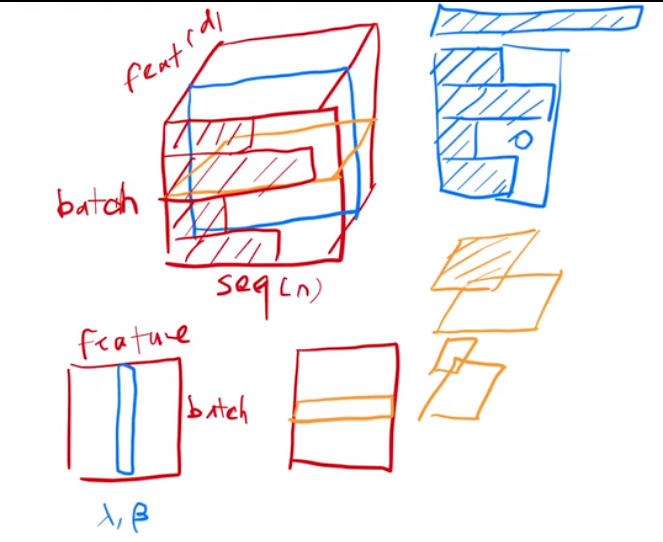 feat(d)
batch
seq(n)
0
feature
batch
λ, β